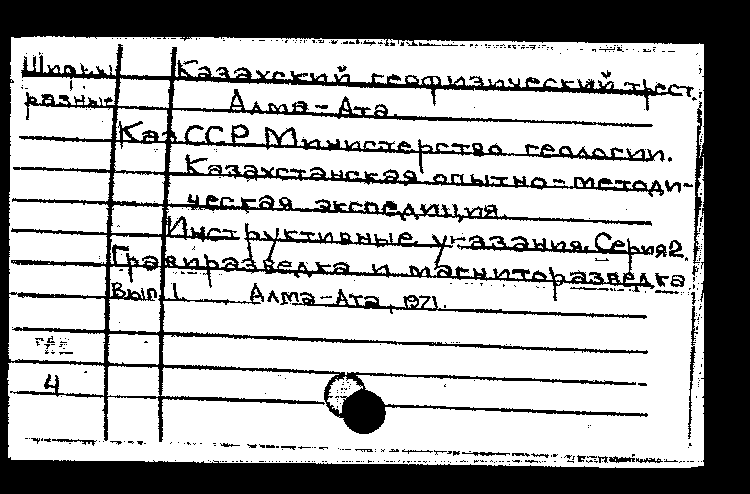 Шифры Казахский геофизический трест.
разные Алма-Ата.
Каз ССР Министерство геологии.
Казахстанская опытно-методи-
ческая экспедиция.
Инструктивные указания. Серия 2.
Гравиразведка и магниторазведка
Вып. 1. Алма-Ата, 1971.
4